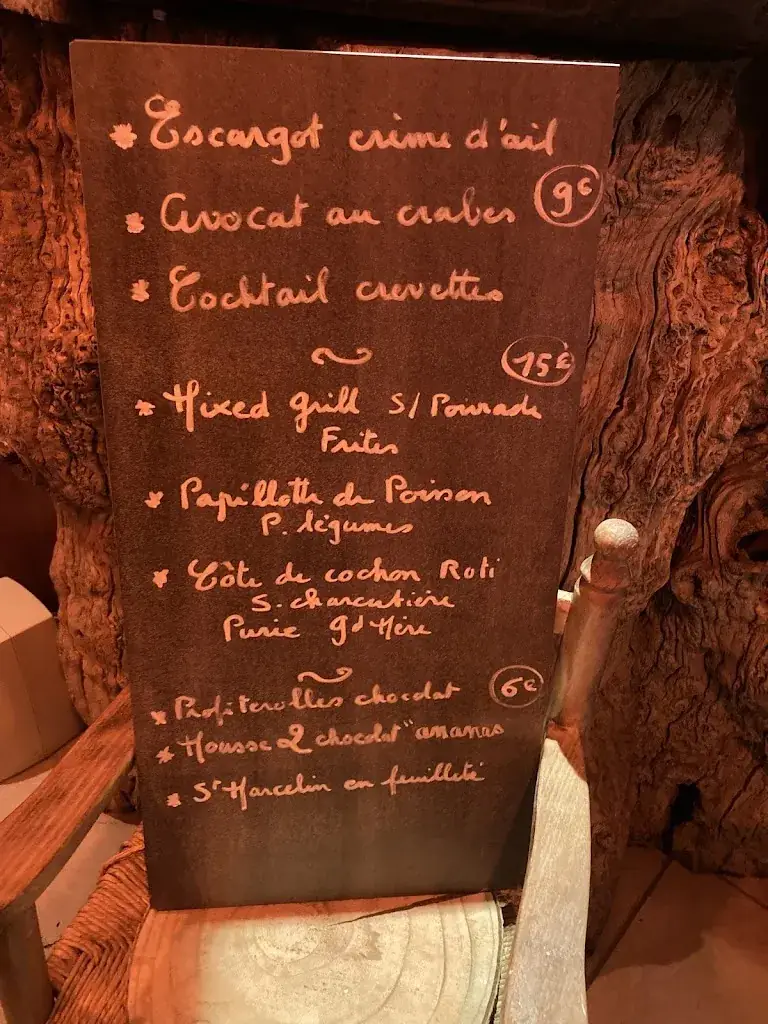 Escargot crème d'ail
9€
Avocat au crabes
Cocktail crevettes
15€
Mixed grill S/ Poivrade
Frites
Papillotte de Poisson
P. légumes
Côte de cochon Roti
S. charcutière
Purée gd Mère
6€
Profiterolles chocolat
Mousse 2 chocolat ananas
St Marcelin en feuilleté